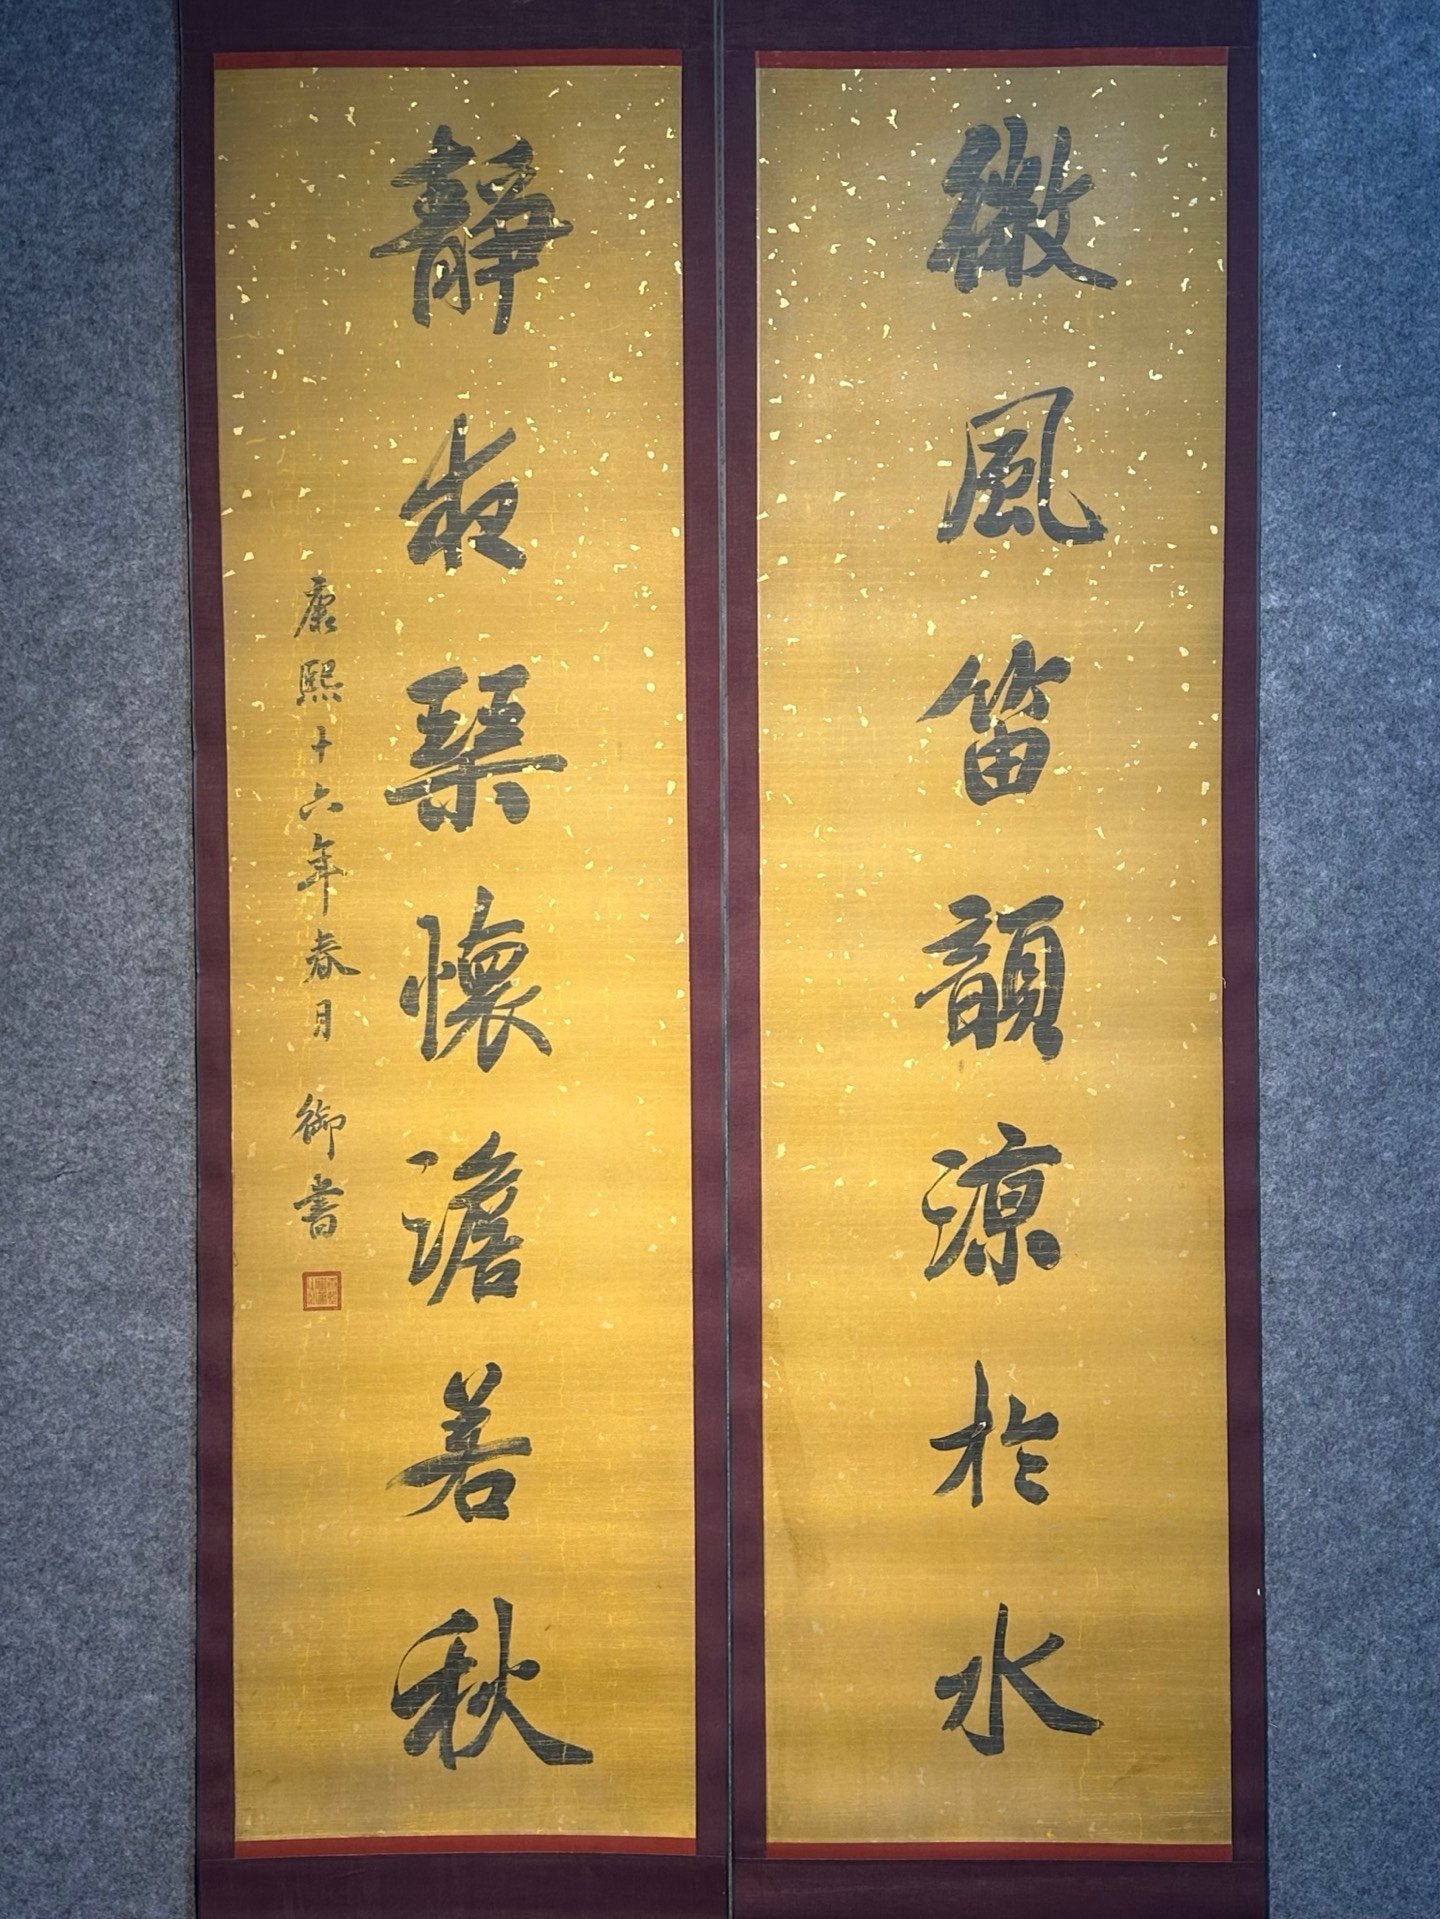 微風笛韻凉於水
靜夜琴懷澹若秋
康熙十六年春月 御書